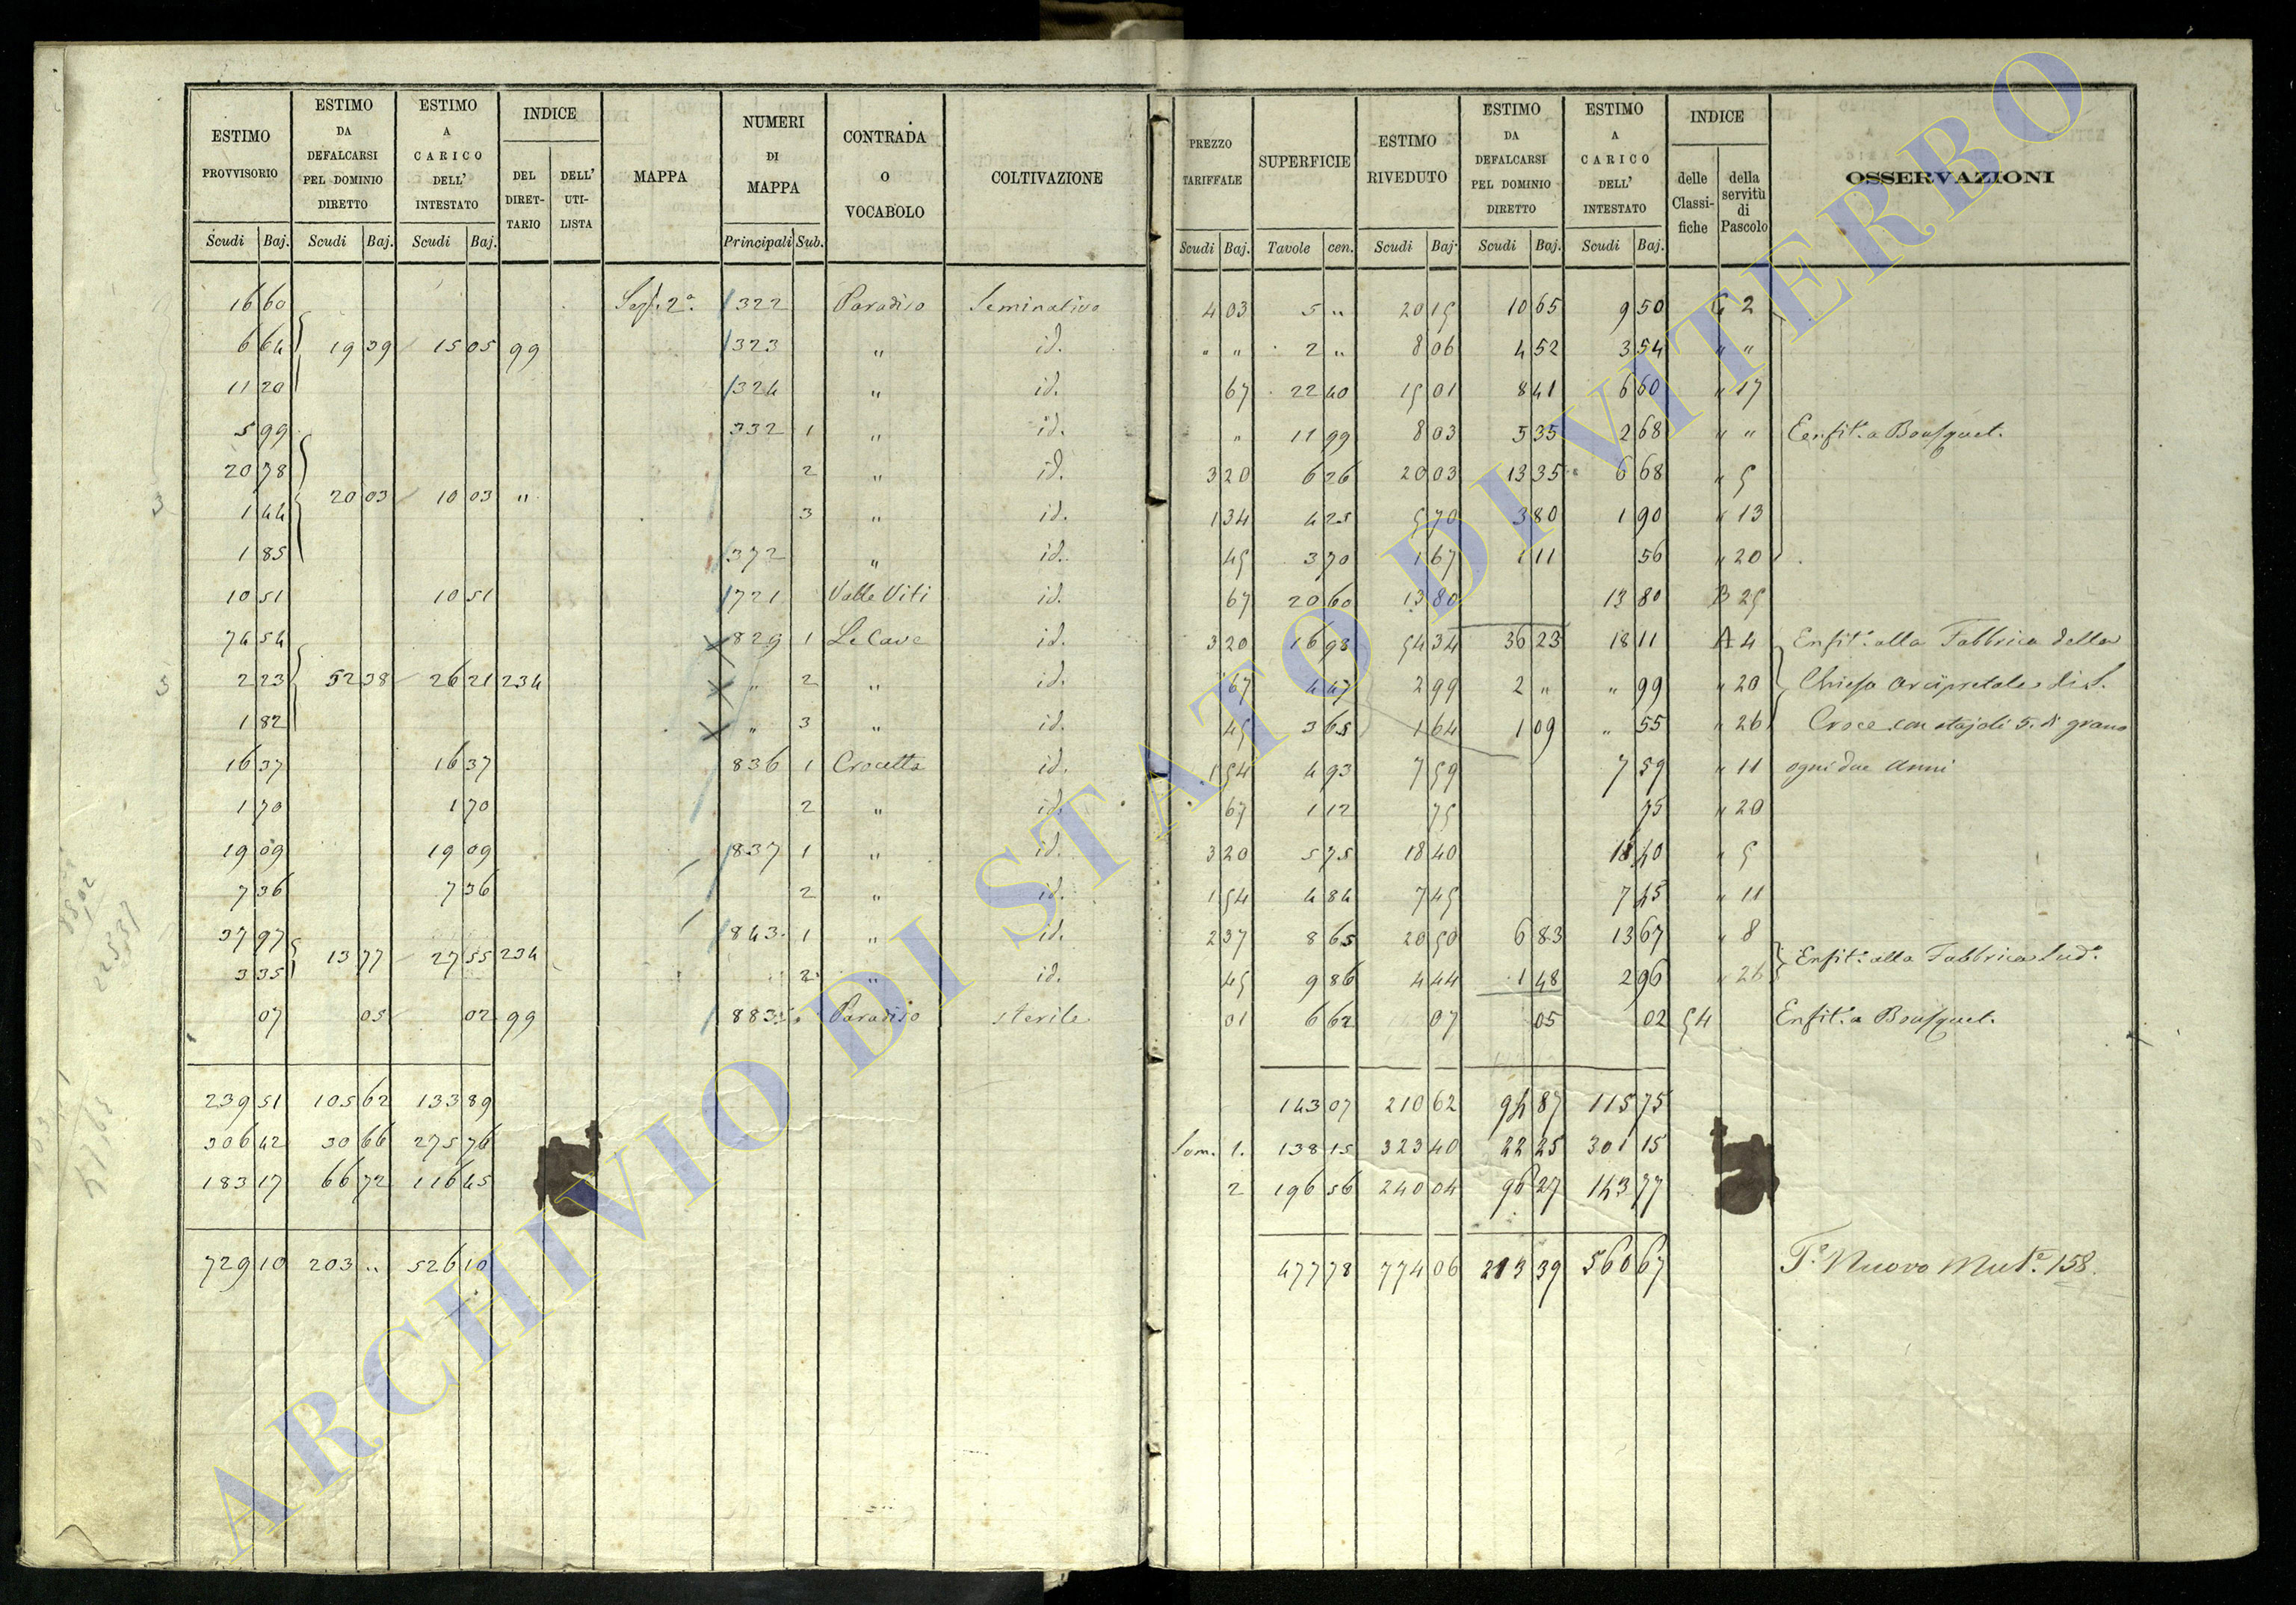 ESTIMO PROVVISORIO Scudi Baj. | ESTIMO DA DEFALCARSI PEL DOMINIO DIRETTO Scudi Baj. | ESTIMO A CARICO DELL' INTESTATO Scudi Baj. | INDICE DEL DIRETTARIO | DELL' UTILISTA | MAPPA | NUMERI DI MAPPA Principali Sub. | CONTRADA O VOCABOLO | COLTIVAZIONE | PREZZO TARIFFALE Scudi Baj. | SUPERFICIE Tavole cen. | ESTIMO RIVEDUTO Scudi Baj. | ESTIMO DA DEFALCARSI PEL DOMINIO DIRETTO Scudi Baj. | ESTIMO A CARICO DELL' INTESTATO Scudi Baj. | INDICE delle Classifiche | della servitù di Pascolo | OSSERVAZIONI
16 60 322 Paradiso Seminativo 4 03 5 " 20 15 10 65 9 50 2
6 64 19 39 15 05 99 323 " id. " " 2 " 8 06 4 52 3 54 " "
11 20 324 " id. 67 22 40 15 01 8 41 6 60 " 17
5 99 332 1 " id. " 11 99 8 03 5 35 2 68 " " a Bousquet.
20 78 2 " id. 3 20 6 26 20 03 13 35 6 68 " 5
20 03 10 03 "
1 44 3 " id. 1 34 4 25 5 70 3 80 1 90 " 13
1 85 372 " id. 45 3 70 1 67 1 11 56 " 20
10 51 10 51 721 Valle Viti id. 67 20 60 13 80 13 80 B 25
74 54 829 1 Le Cave id. 3 20 16 98 54 34 36 23 18 11 A 4 Enfit.a alla Fabbrica della
2 23 52 38 26 21 234 " 2 " id. 67 4 47 2 99 2 " " 99 " 20 Chiesa Arcipretale di S.
1 82 " 3 " id. 45 3 65 1 64 1 09 " 55 " 26 Croce con stajoli 5. di grano
16 37 16 37 836 1 Crocetta id. 1 54 4 93 7 59 7 59 " 11 ogni due anni
1 70 1 70 2 " id. 67 1 12 75 75 " 20
19 09 19 09 837 1 " id. 3 20 5 75 18 40 18 40 " 5
7 36 7 36 2 " id. 1 54 4 84 7 45 7 45 " 11
37 97 843 1 " id. 2 37 8 65 20 50 6 83 13 67 " 8
13 77 27 55 234 Enfit.a alla Fabbrica sud.a
3 35 2 " id. 45 9 86 4 44 1 48 2 96 " 26
07 05 02 99 883 Paradiso sterile 01 6 62 07 05 02 54 Enfit.a a Bousquet.
239 51 105 62 133 89 143 07 210 62 94 87 115 75
306 42 30 66 275 76 Som. 1. 138 15 323 40 22 25 301 15
183 17 66 72 116 45 2 196 56 240 04 96 27 143 77
729 10 203 " 526 10 477 78 774 06 213 39 560 67 Nuovo 158.
ARCHIVIO DI STATO DI VITERBO